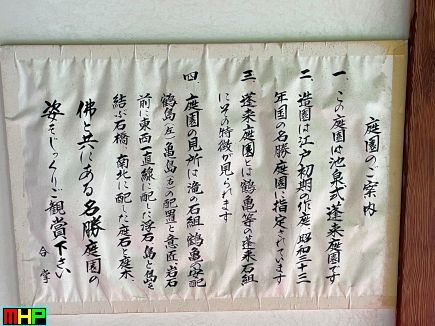 庭園のご案内
一、この庭園は池泉式蓬来庭園です
二、造園は江戸初期の作庭 昭和三十三
年国の名勝庭園に指定されています
三、蓬来庭園とは鶴亀等の蓬来石組
にその特徴が見られます
四、庭園の見所は滝の石組 鶴亀の配
鶴島(左)亀島(右)の配置と意匠、岩石
前に東西一直線に配した浮石、島と島を
結ぶ石橋 南北に配した座石と庭木、
佛と共にある名勝庭園の
姿をじっくりご観賞下さい
合掌
MHP